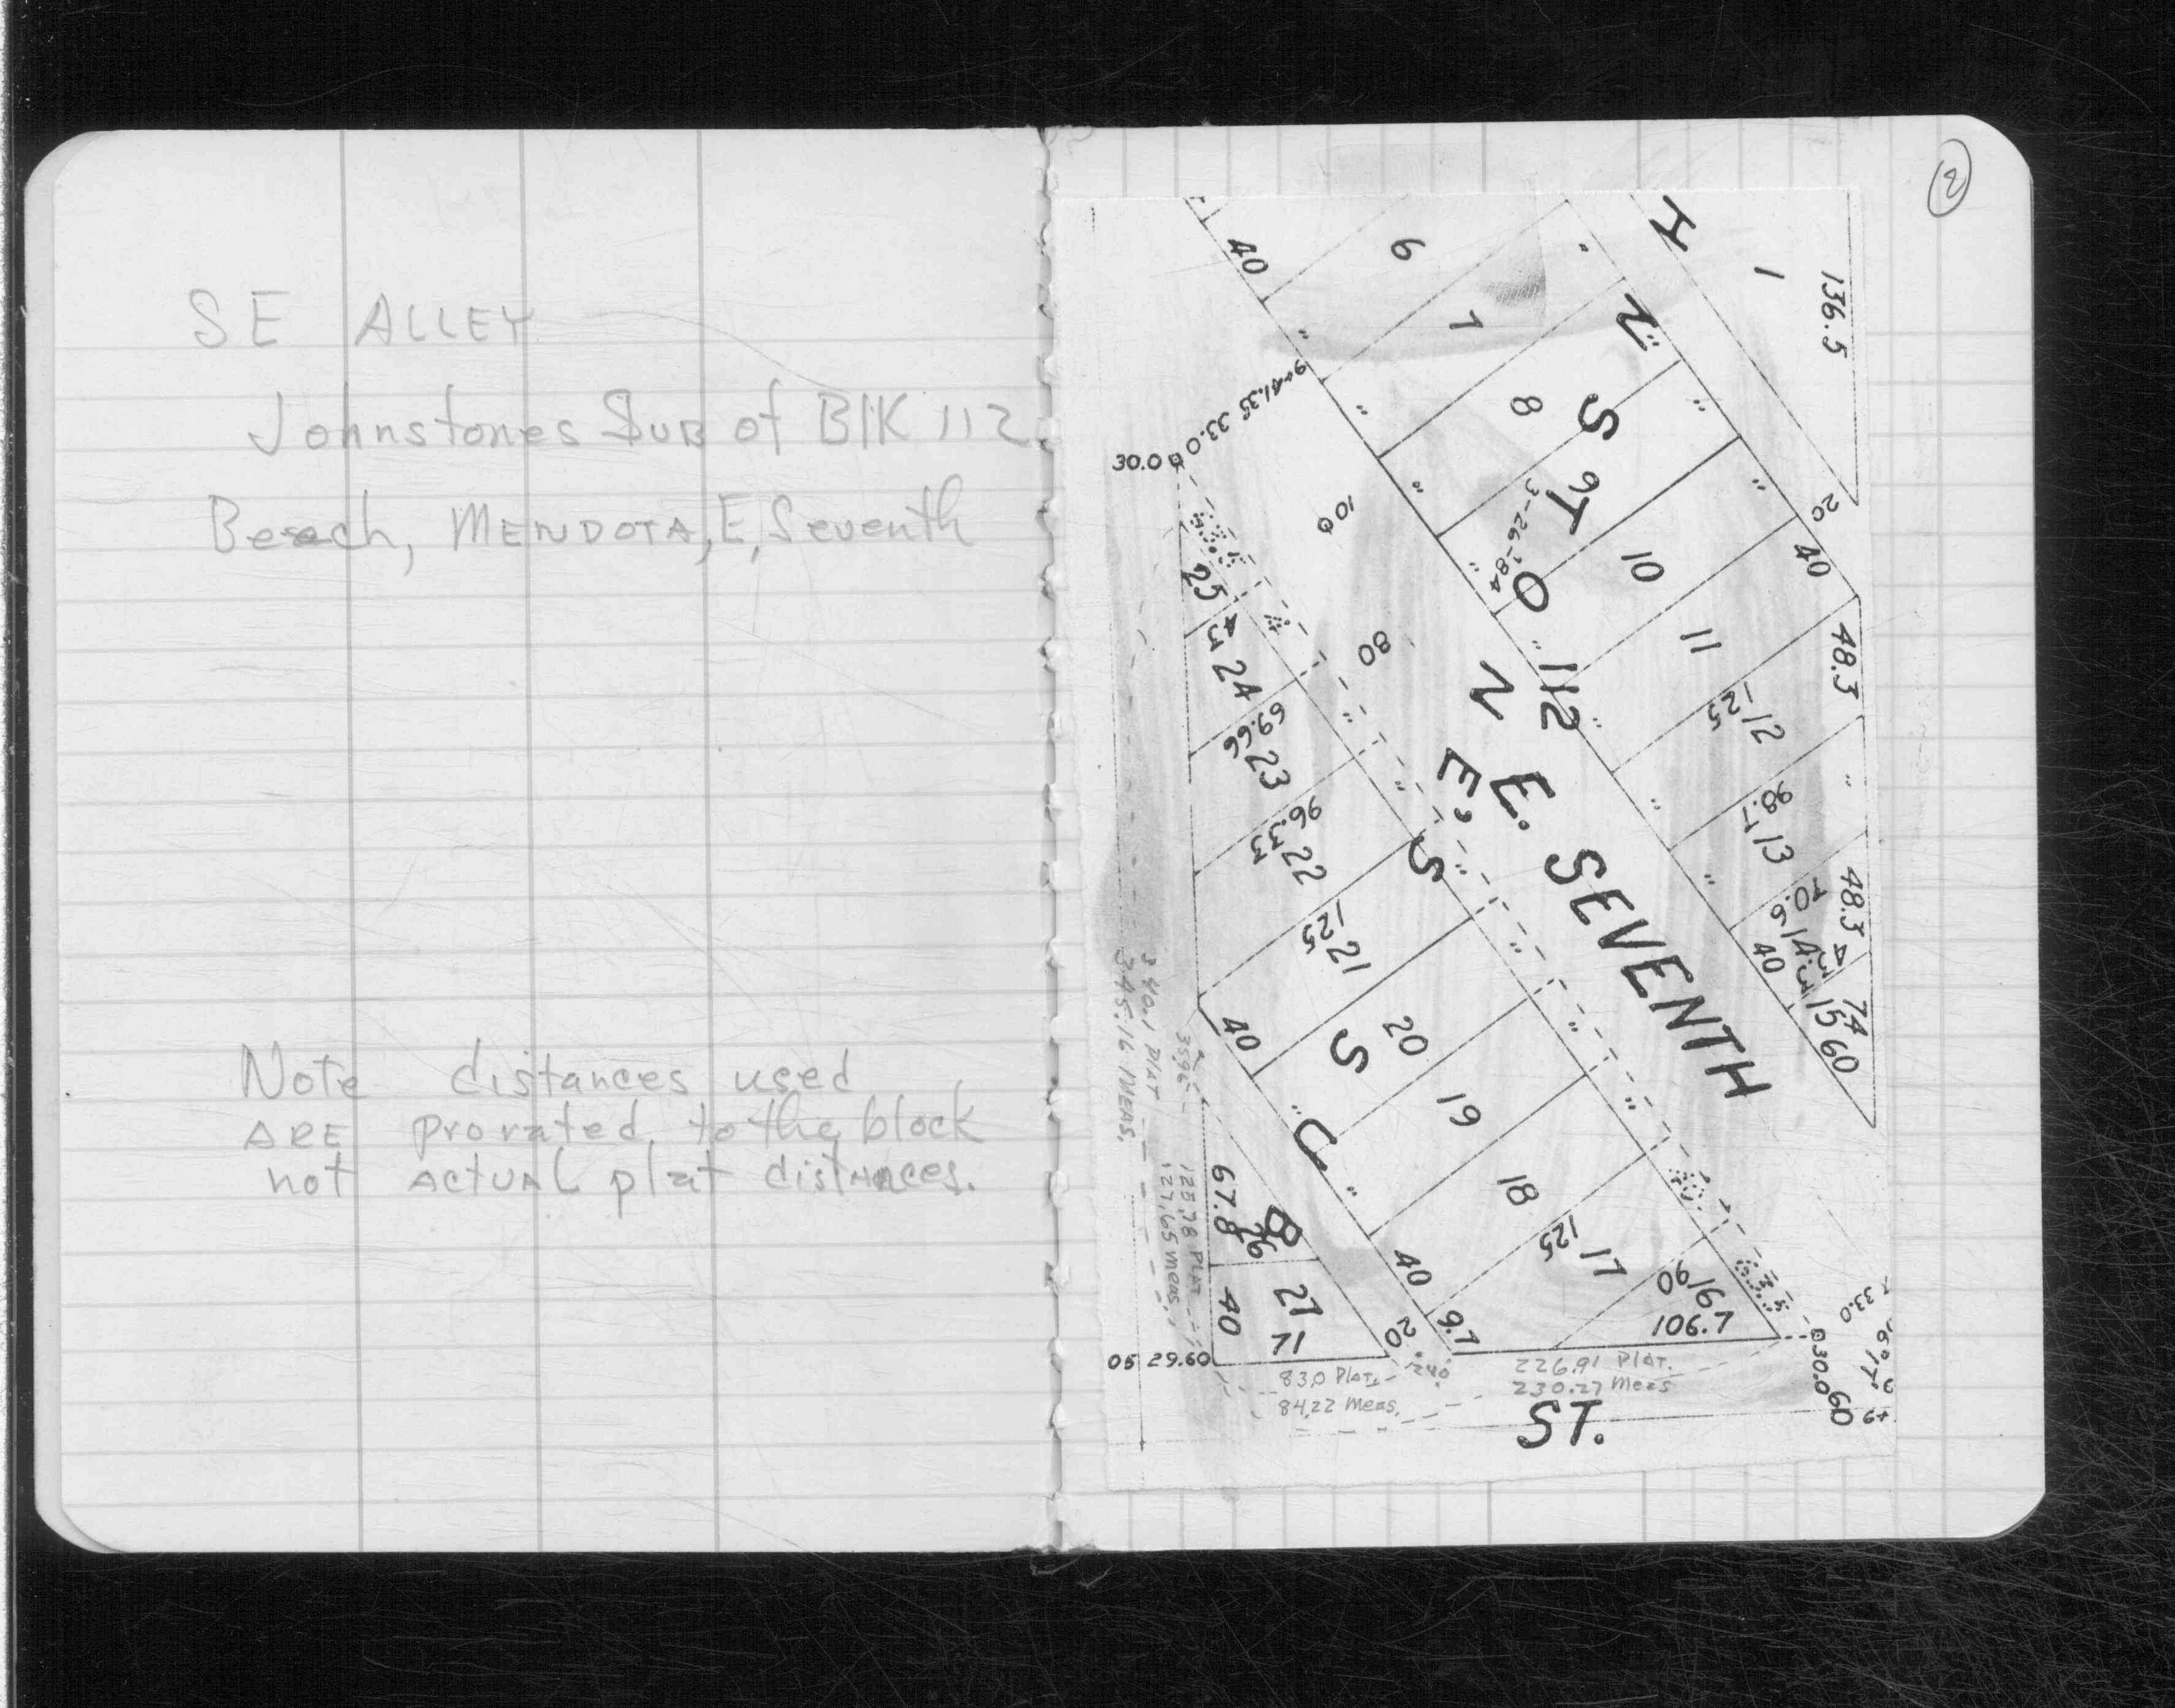 SE ALLEY
Johnstones Sub of Blk 112
Beech, MENDOTA, E, Seventh
Note distances used
ARE prorated to the block
not actual plat distances.
2
136.5
H
1
40
6
7
N
8
S
9
T
3-26-'84
O
9+41.35 33.0
30.0
10
80
20
40
10
11
48.3
112
N
E.
125
12
98.7
13
70.6
14
48.3
43
40
15
74
60
E. SEVENTH
25
43
24
69.66
23
96.33
22
S
125
21
40
20
S
19
C
18
125
17
40
90
16
106.7
9.7
20
33.0
30.0
60
340.1 PLAT
345.16 MEAS.
125.78 PLAT
127.65 meas.
67.8
B
26
40
27
71
05 29.60
83.0 Plat
84.22 Meas.
226.91 Plat.
230.27 Meas
ST.